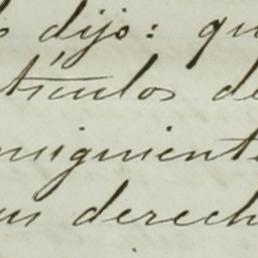 dijo: qu
tículos de
nsiguiente
un derech